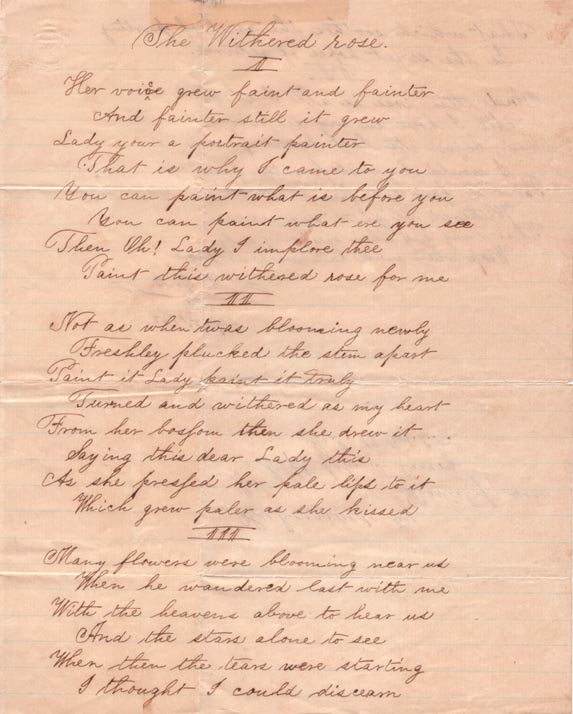 The Withered rose.
I
Her voice grew faint and fainter
And fainter still it grew
Lady your a portrait painter
That is why I came to you
You can paint what is before you
You can paint what ere you see
Then Oh! Lady I implore thee
Paint this withered rose for me
II
Not as when twas blooming newly
Freshley plucked the stem apart
Paint it Lady paint it truly
Turned and withered as my heart
From her bosfom then she drew it
Saying this dear Lady this
As she presfed her pale lips to it
Which grew paler as she kissed
III
Many flowers were blooming near us
When he wandered last with me
With the heavens above to hear us
And the stars alone to see
When then the tears were starting
I thought I could discearn